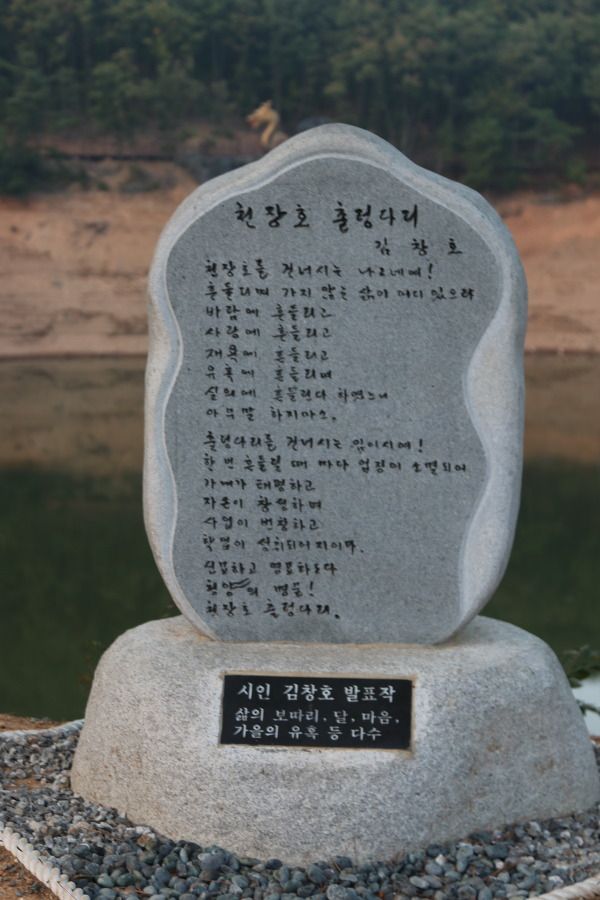 천장호 출렁다리
김 창 호
천장호를 건너시는 나그네여!
흔들리며 가지 않은 삶이 어디 있으랴
바람에 흔들리고
사랑에 흔들리고
재욕에 흔들리고
유혹에 흔들리며
실의에 흔들린다 하였느니
아무말 하지마소.
출렁다리를 건너시는 임이시여!
한 번 흔들릴 때 마다 업장이 소멸되어
가내가 태평하고
자손이 창성하며
사업이 번창하고
학업이 성취되어지이다.
신묘하고 영묘하도다
청양의 명물!
천장호 출렁다리.
시인 김창호 발표작
삶의 보따리, 달, 마음,
가을의 유혹 등 다수